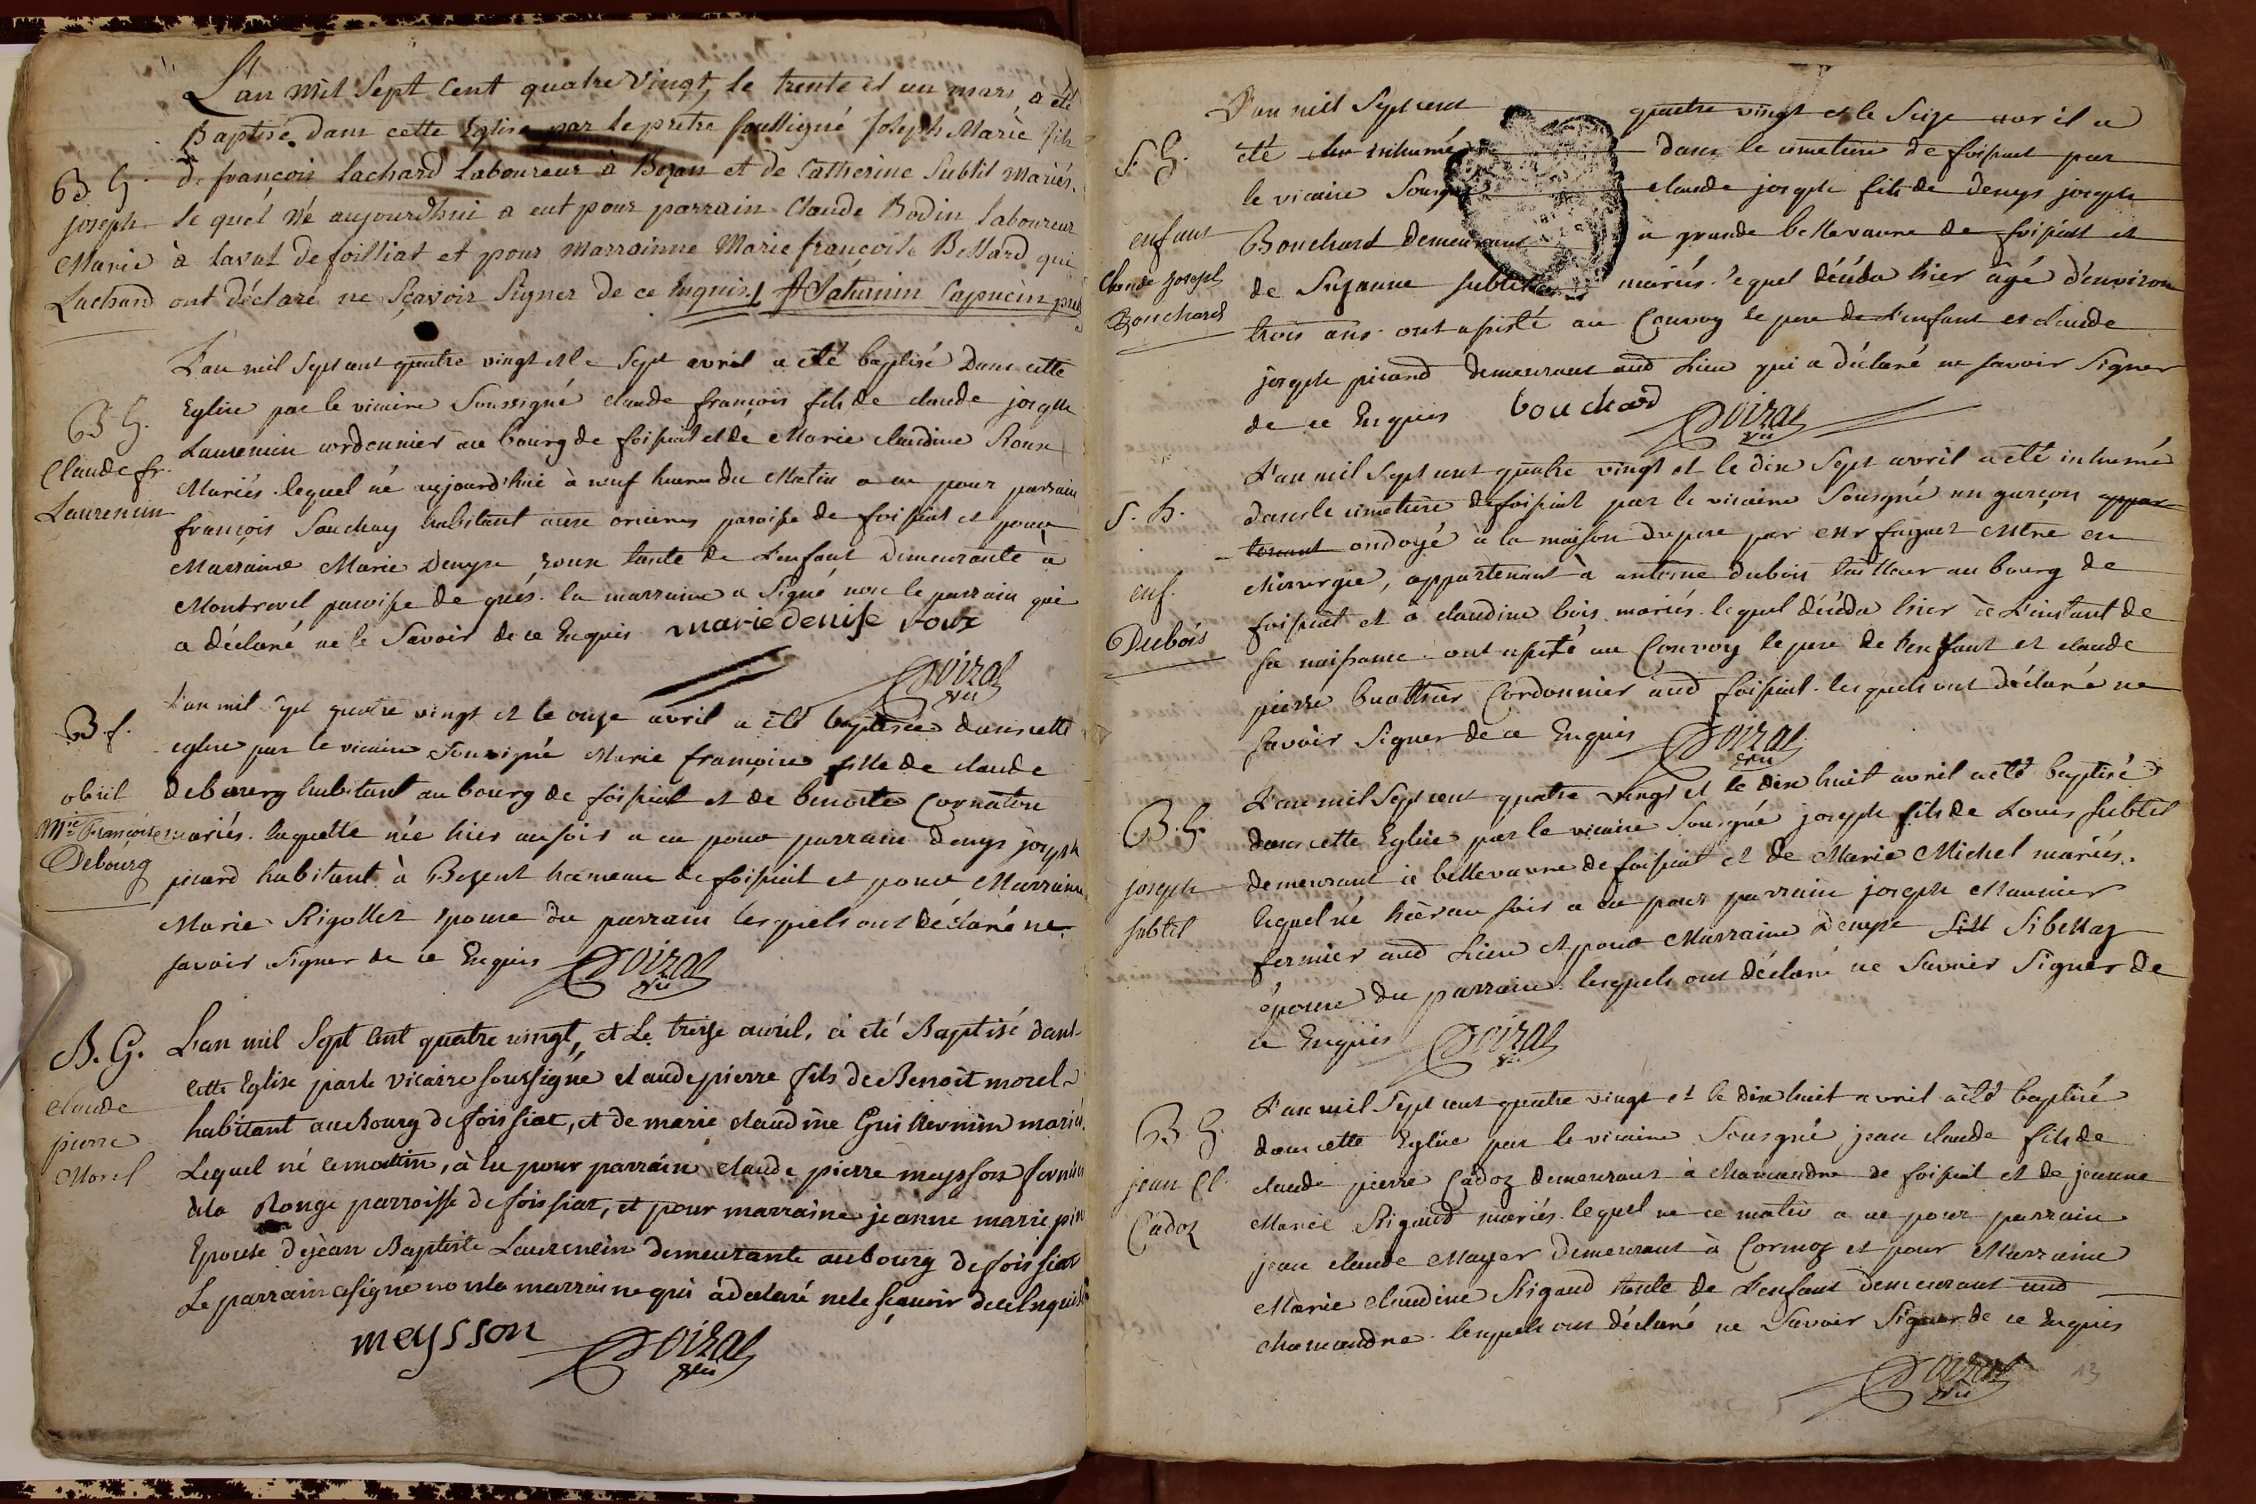 L'an mil Sept Cent quatre vingt, le trente et un mars, a été
Baptisé dans cette Eglise par le pretre soussigné Joseph Marie fils
B. G. de françois Lachard Laboureur à Bezan et de Catherine Subtil mariés.
joseph le quel né aujourdhui a eut pour parrain Claude Bodin laboureur
Marie à laval de foilliat et pour marrainne Marie françoise Bellard qui
Lachard ont déclaré ne Sçavoir Signer de ce Enquis. f Saturnin Capucin
L'an mil Sept cent quatre vingt et le Sept avril a été baptisé Dans cette
Eglise par le vicaire Soussigné claude françois fils de claude joseph
B G. Laurencin cordonnier au bourg de foissiat et de Marie claudine Roux
Claude fr. Mariés. lequel né aujourd'hui à neuf heures du Matin a eu pour parrain
Laurencin françois Souchay habitant aux paroisse de foissiat et pour
Marraine Marie Denyse roux tante de L'enfant Demeurante à
Montrevel paroisse de la marraine a Signé non le parrain qui
a déclaré ne le Savoir de ce Enquis marie denise roux
Doiral
vic
B. f. L'an mil Sept quatre vingt et le onze avril a été baptisée dans cette
eglise par le vicaire Sousigné Marie françoise fille de claude
obiit debourg habitant au bourg de foissiat et de benoite
Mie Françoise mariés. laquelle née hier au soir a eu pour parrain denys joseph
Debourg picard habitant à Bezent hameau de foissiat et pour Marraine
Marie Rigollet épouse du parrain lesquels ont déclaré ne
savoir Signer de ce Enquis Doiral
vic
B. G. L'an mil Sept Cent quatre vingt, et Le treize avril, à été Baptisé dans
cette Eglise par le vicaire soussigné claude pierre fils de Benoit morel
Claude habitant au Bourg de foissiat, et de marie claudine Guillermin mariés
pierre Lequel né ce matin, à Eu pour parrain claude pierre meysson
Morel de la Ronge parroisse de foissiat, et pour marraine jeanne marie
Epouse de jean Baptiste Laurencin demeurante au bourg de foissiat
Le parrain a signé non la marraine qui à declaré ne le sçavoir de ce Enquis
meysson Doiral
vic
L'an mil Sept cent quatre vingt et le Seize avril a
S. G. été inhumé dans le cimetiere de foissiat par
le vicaire Sousigné claude joseph fils de denys joseph
enfant Bouchard demeurant à grande bellevavre de foissiat et
Claude joseph de Suzanne Subtil mariés. lequel décéda hier âgé d'environ
Bouchard trois ans. ont assisté au Convoy le pere de l'enfant et claude
joseph picard demeurant aud Lieu qui a déclaré ne savoir Signer
de ce Enquis bouchard Doiral
vic
L'an mil Sept cent quatre vingt et le dix Sept avril a été inhumé
S. G. dans le cimetiere de foissiat par le vicaire Sousigné un garçon appar
tenant ondoyé à la maison du pere par Mr faguet Mtre en
enf. chirurgie, appartenant à antoine dubois tailleur au bourg de
Dubois foissiat et à claudine bois mariés. lequel décéda hier à L'instant de
sa naissance. ont assisté au Convoy le pere de l'enfant et claude
pierre buathier Cordonnier aud foissiat. lesquels ont déclaré ne
savoir Signer de ce Enquis Doiral
vic
L'an mil Sept cent quatre vingt et le dix huit avril a été baptisé
B. G. dans cette Eglise par le vicaire Sousigné joseph fils de Louis Subtil
joseph demeurant à bellevavre de foissiat et de Marie Michel mariés.
Subtil lequel né hier au soir a eu pour parrain joseph Maunier
fermier aud Lieu et pour Marraine Denyse Sibellaz
épouse du parrain. lesquels ont déclaré ne Savoir Signer de
ce Enquis Doiral
vic
L'an mil Sept cent quatre vingt et le dix huit avril a été baptisé
B G. dans cette Eglise par le vicaire Sousigné jean claude fils de
jean Cl. claude pierre Cadoz demeurant à chamandre de foissiat et de jeanne
Cadoz Marie Rigaud mariés. lequel né ce matin a eu pour parrain
jean claude Mayer demeurant à Cormoz et pour Marraine
Marie claudine Rigaud tante de L'enfant demeurant aud
chamandre. lesquels ont déclaré ne Savoir Signer de ce Enquis
Doiral
vic
13